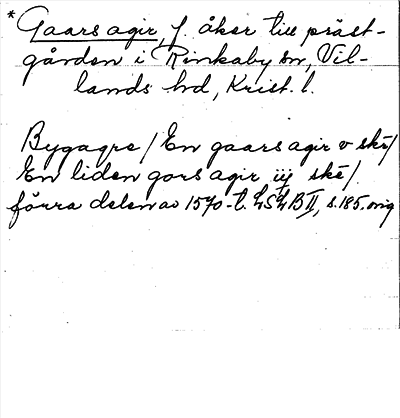 * Gaars agir, f. åker till präst-
gården i Rinkaby sn, Vil-
lands hd, Krist. l.
Bygagre / En gaars agir v skē /
En liden gors agir iij skē /.
förra delen av 1570-t. LSLB II, s. 185. orig